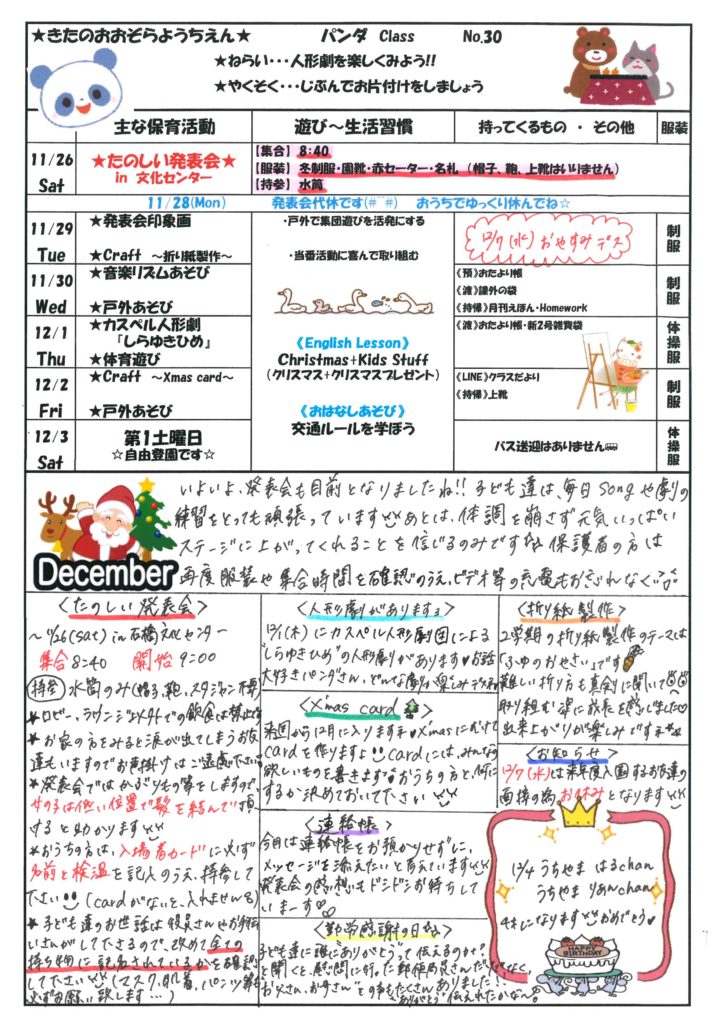 ★きたのおおぞらようちえん★ パンダ Class No.30
★ねらい・・・人形劇を楽しくみよう!!
★やくそく・・・じぶんでお片付けをしましょう
主な保育活動 遊び～生活習慣 持ってくるもの ・ その他 服装
11/26 Sat
★たのしい発表会★
in 文化センター
【集合】 8:40
【服装】 冬制服・園靴・赤セーター・名札 （帽子、鞄、上靴はいりません）
【持参】 水筒
11/28(Mon) 発表会代休です(#￣#) おうちでゆっくり休んでね☆
11/29 Tue
★発表会印象画
★Craft ～折り紙製作～
・戸外で集団遊びを活発にする
・当番活動に喜んで取り組む
12/7(水)おやすみデス
制服
11/30 Wed
★音楽リズムあそび
★戸外あそび
《預》おたより帳
《渡》課外の袋
《持帰》月刊えほん・Homework
制服
12/1 Thu
★カスペル人形劇
「しらゆきひめ」
★体育遊び
《English Lesson》
Christmas+Kids Stuff
（クリスマス+クリスマスプレゼント）
《渡》おたより帳・新2号雑費袋
体操服
12/2 Fri
★Craft ～Xmas card～
★戸外あそび
《おはなしあそび》
交通ルールを学ぼう
《LINE》クラスだより
《持帰》上靴
制服
12/3 Sat
第1土曜日
☆自由登園です☆
バス送迎はありません
体操服
December
いよいよ、発表会も目前となりましたね!! 子ども達は、毎日songや劇の
練習をとっても頑張っています あとは、体調を崩さず元気いっぱい
ステージに上がってくれることを信じるのみです 保護者の方は
再度服装や集合時間を確認のうえ、ビデオ等の充電もおわすれなく
〈たのしい発表会〉
～11/26(sat) in 石橋文化センター～
集合 8:40 開始 9:00
持参 水筒のみ(帽子、鞄、スタジャン不要)
★ロビー、ラウンジ以外での飲食は禁止です
★お家の方をみると涙が出てしまうお友
達もいますのでお声掛けはご遠慮下さい
★発表会ではかぶりもの等をしますので
女の子は低い位置で髪を結んで頂
けると助かります
★おうちの方は、入場者カードに必ず
名前と検温を記入のうえ、持参して
下さい (cardがないと、入れません)
★子ども達のお世話は役員さんやお手伝
いさんがして下さるので、改めて全ての
持ち物に記名されているかを確認
して下さい (マスク、肌着、パンツ等も
必ずお願い致します…)
〈人形劇がありますョ〉
12/1(木)にカスペル人形劇団による
"しらゆきひめ"の人形劇があります お話
大好きパンダさん、どんな劇か楽しみデスね
〈X'mas card〉
来週から12月に入ります Xmasにむけて
cardを作りますョ cardには、みんなの
欲しいものを書きます おうちの方と、何に
するか決めておいて下さい
〈連絡帳〉
今月は連絡帳をお預かりせずに、
メッセージを添えたいと考えています
発表会の感想もドシドシお待ちして
いまーす
〈勤労感謝の日〉
子ども達に誰に"ありがとう"って伝えるのかな?
と聞くと、慰問に行った郵便局員さんだけでなく、
お父さん、お母さん"との声もたくさんありました!!
ありがとう 伝えれたかな～
〈折り紙製作〉
2学期の折り紙製作のテーマは
「ふゆのおやさい」です
難しい折り方も真剣に聞いて
取り組む姿に成長を感じました
出来上がりが楽しみですネ
〈お知らせ〉
12/7(水)は来年度入園するお友達の
面接の為お休みとなります
12/4 うちやま はるchan
うちやま りあんchan
4才になります おめでとう
HAPPY BIRTHDAY